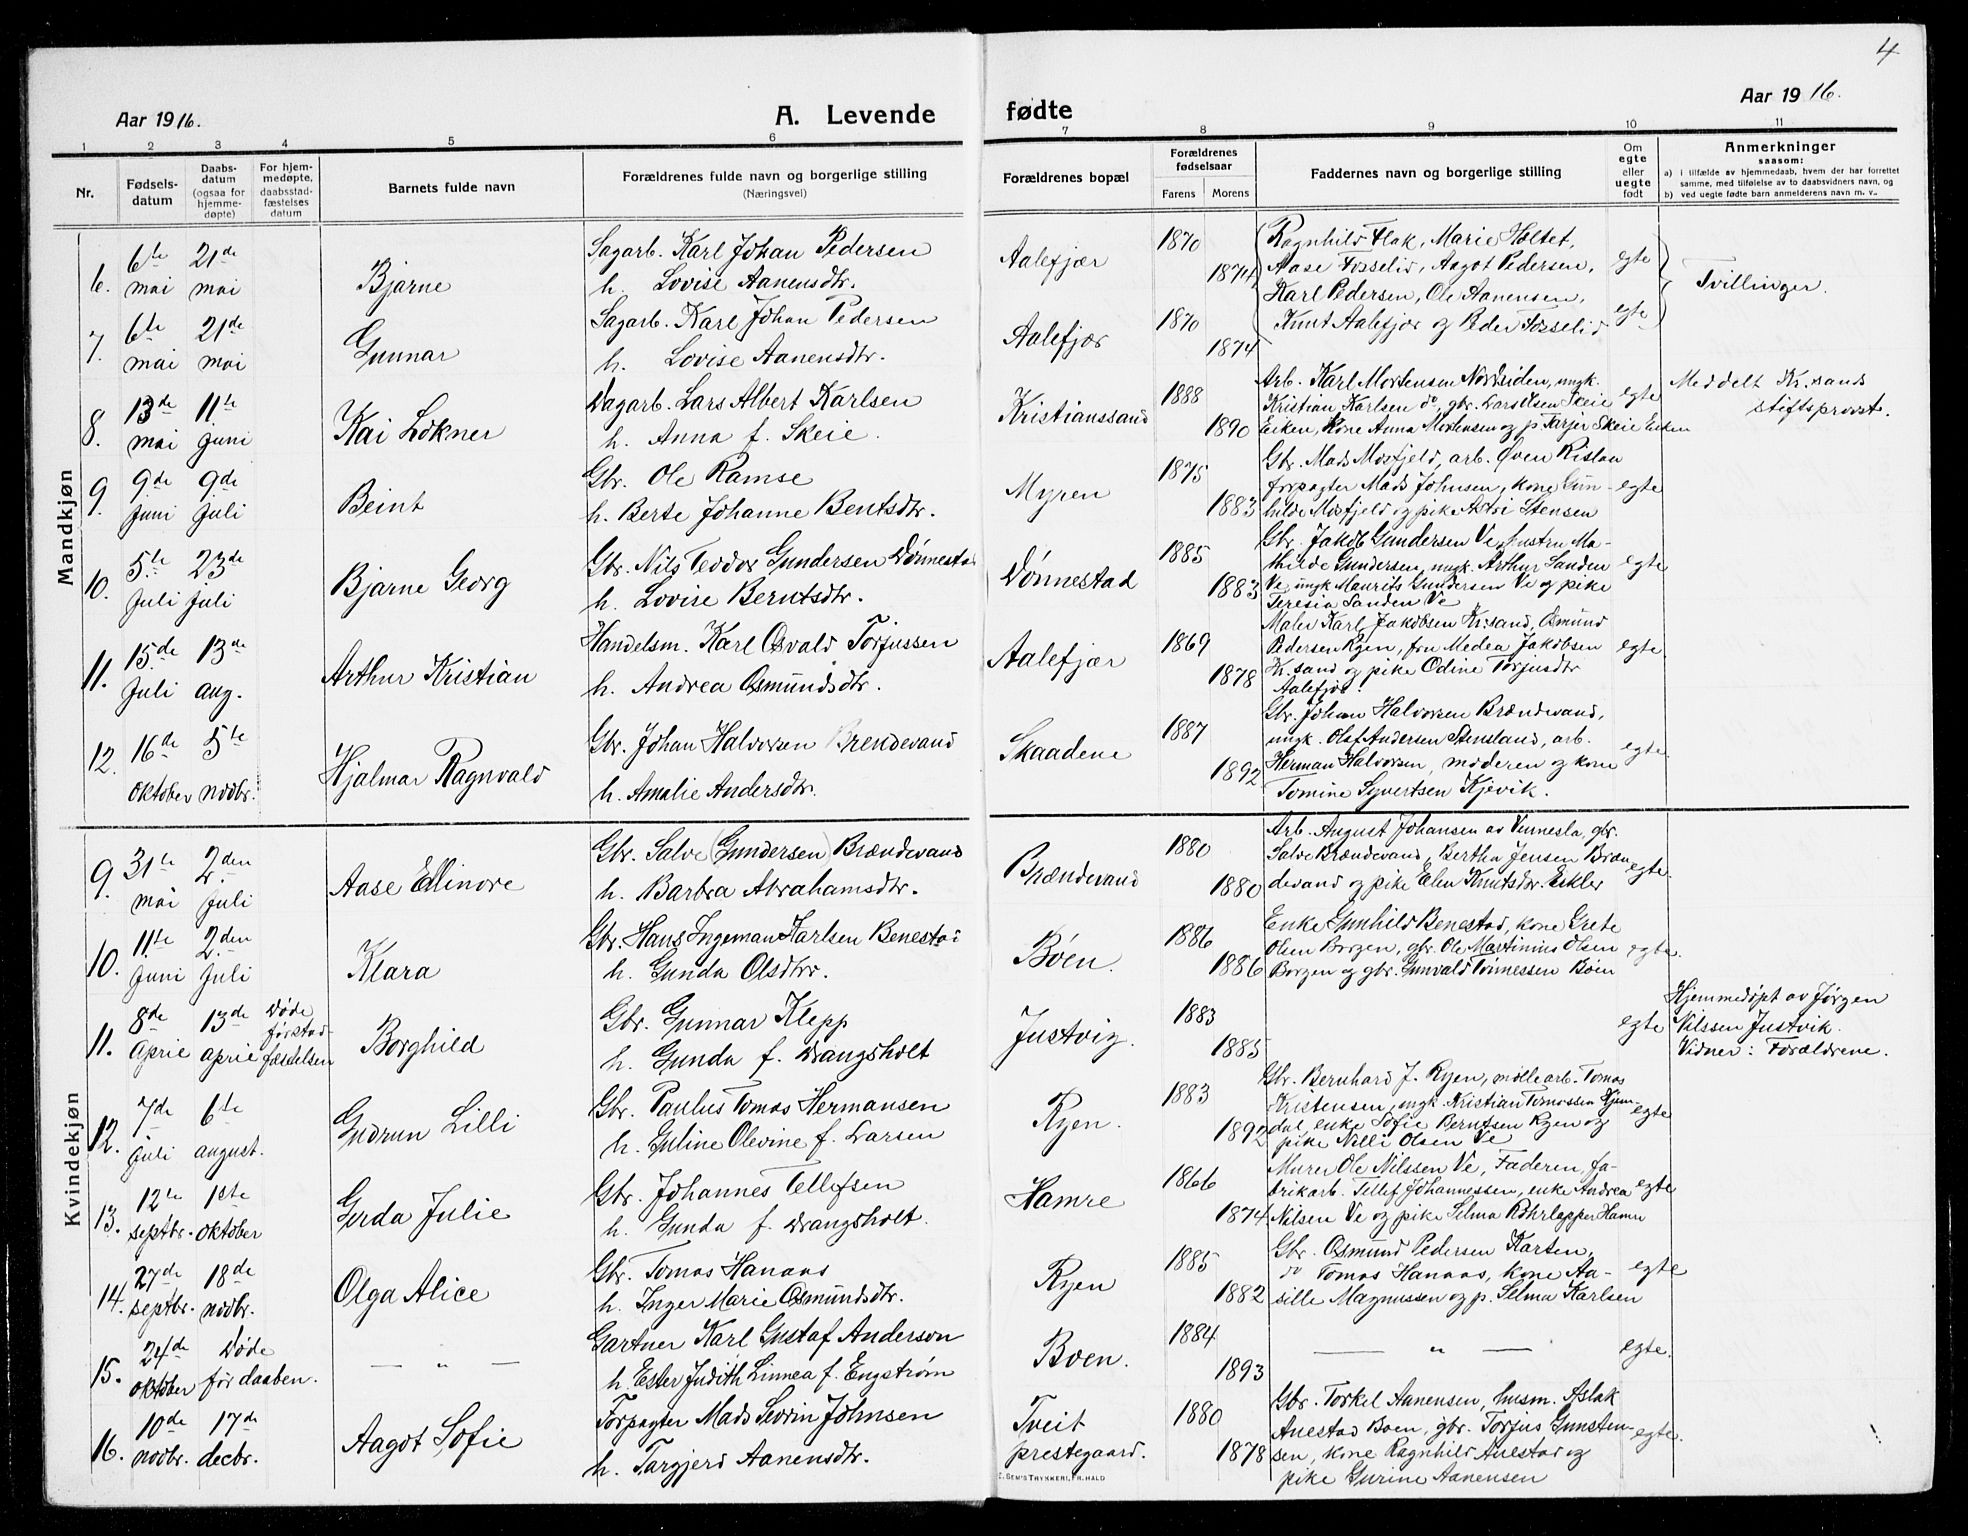 4
Aar 1916.
A. Levende
fødte
Aar 1916.
1 2 3 4 5 6 7 8 9 10 11
Nr.
Fødsels-
datum
Daabs-
datum
(ogsaa for
hjemme-
døpte)
For hjem-
medøpte,
daabsstad-
fæstelses
datum
Barnets fulde navn
Forældrenes fulde navn og borgerlige stilling
(Næringsvei)
Forældrenes bopæl
Forældrenes
fødselsaar
Farens Morens
Faddernes navn og borgerlige stilling
Om
egte
eller
uegte
født
Anmerkninger
saasom:
a) i tilfælde av hjemmedaab, hvem der har forrettet
samme, med tilføielse av to daabsvidners navn, og
b) ved uegte fødte barn anmelderens navn m. v..
Mandkjøn
6. 6te mai 21de mai
Bjarne
Sagarb. Karl Johan Pedersen
h. Lovise Aanensdtr.
Aalefjær
1870
1874
Ragnhild Flak, Marie Holtet,
Aase Fosselid, Aagot Pedersen,
Karl Pedersen, Ole Aanensen,
Knut Aalefjær og Peder Fosselid
egte
Tvillinger.
7. 6te mai 21de mai
Gunnar
Sagarb. Karl Johan Pedersen
h. Lovise Aanensdtr.
Aalefjær
1870
1874
egte
8. 13de mai 11te juni
Kai Lokner
Dagarb. Lars Albert Karlsen
h. Anna f. Skeie.
Kristianssand
1888
1890
Arb. Karl Mortensen Nordsiden, ungk.
Kristian Karlsen do, gbr. Lars Olsen Skeie
Eiken, Kone Anna Mortensen og p. Tarjer Skeie Eiken
egte
Meddelt Kr.sands
stiftsprovst.
9. 9de juni 9de juli
Beint
Gbr. Ole Ramse
h. Berte Johanne Bentsdtr.
Myren
1875
1883
Gbr. Mads Mosfjeld, arb. Øven Rislaa
forpagter Mads Johnsen, kone Gun-
hilde Mosfjeld og pike Astri Stensen
egte
10. 5te Juli 23de Juli
Bjarne Georg
Gbr. Nils Teodor Gundersen Dønnestad
h. Lovise Berntsdtr.
Dønnestad
1885
1883
Gbr. Jakob Gundersen Ve, hustru Ma-
thilde Gundersen, ungk. Arthur Sanden
Ve, ungk Maurits Gundersen Ve og pike
Teresia Sanden Ve
egte
11. 15de Juli 13de aug.
Arthur Kristian
Handelsm. Karl Osvald Torjussen
h. Andrea Osmundsdtr.
Aalefjær
1869
1878
Maler Karl Jakobsen Kr.sand, Osmund
Pedersen Ryen, fru Medea Jakobsen
Kr.sand og pike Odine Torjusdtr
Aalefjær.
egte.
12. 16de oktober 5te novbr.
Hjalmar Ragnvald
Gbr. Johan Halvorsen Brendevand
h. Amalie Andersdtr.
Skaadene
1887
1892
Gbr. Johan Halvorsen Brændevand,
ungk. Olaf Andersen Stensland, arb.
Herman Halvorsen, moderen og kone
Tomine Syvertsen Kjevik.
egte.
Kvindekjøn
9. 31te mai 2den juli
Aase Ellinore
Gbr. Salve (Gundersen) Brændevand
h. Barbra Abrahamsdtr.
Brændevand
1880
1880
Arb. August Johansen av Vennesla, gbr.
Salve Brændevand, Bertha Jensen Bræn-
devand og pike Elen Knutsdtr. Eskler
egte.
10. 11te juni 2den Juli
Klara
Gbr. Hans Ingeman Karlsen Benestad
h. Gunda Olsdtr.
Bøen.
1886
1886
Enke Gunhild Benestad, kone Grete
Olsen Borgen, gbr. Ole Martinius Olsen
Borgen og gbr. Gunvald Tønnessen Bøen
egte.
11. 8de april 13de april Døde
før stad-
fæstelsen
Borghild
Gbr. Gunnar Klepp
h. Gunda f. Drangsholt
Justvig.
1883
1885
egte
Hjemmedøpt av Jørgen
Nilssen Justvik.
Vidner: Forældrene.
12. 7de juli 6te august.
Gudrun Lilli
Gbr. Paulus Tomas Hermansen
h. Guline Olevine f. Larsen
Ryen.
1883
1892
Gbr. Bernhard J. Ryen, møllearb. Tomas
Kristensen, ungk Kristian Tomassen Gjem-
dal, enke Sofie Berntsen Ryen og
pike Nilli Olsen Ve
egte
13. 12te septbr. 1ste oktober
Gerda Julie
Gbr. Johannes Tellefsen
h. Gunda f. Drangsholt.
Hamre
1866
1874
Murer Ole Nilssen Ve, Faderen, fa-
brikarb. Tellef Johannessen, enke Andrea
Nilsen Ve og pike Selma Røhrlepper Hamre
egte
14. 27de septbr. 18de novbr.
Olga Alice
Gbr. Tomas Hanaas
h. Inger Marie Osmundsdtr.
Ryen
1885
1882
Gbr. Osmund Pedersen Karten,
do Tomas Hanaas, kone Aa-
sille Magnussen og p. Selma Karlsen
egte
15. 24de oktober Døde
før daaben.
— „ —
Gartner Karl Gustaf Anderson
h. Ester Judith Linnea f. Engstrøm
Boen.
1884
1893
— „ —
egte.
16. 10de novbr. 17de decbr.
Aagot Sofie
Forpagter Mads Severin Johnsen
h. Targjerd Aanensdtr.
Tveit
prestegaard.
1880
1878
Gbr. Torkel Aanensen, husm. Aslak
Auestad Boen, gbr. Torjus Gunsten-
sen, kone Ragnhild Auestad og
pike Gurine Aanensen
egte.
E. SEM'S TRYKKERI, FR.HALD